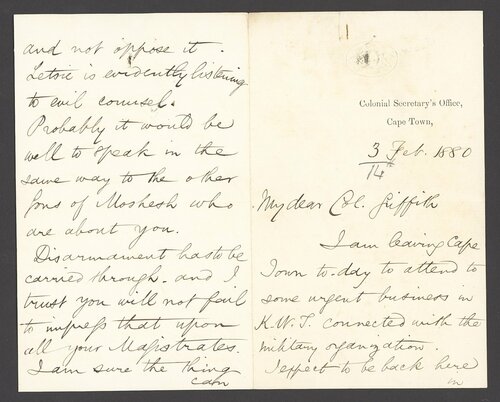 and not oppose it.
Letsie is evidently listening
to evil counsel.
Probably it would be
well to speak in the
same way to the other
Sons of Moshesh who
are about you.
Disarmament has to be
carried through. and I
trust you will not fail
to impress that upon
all your Magistrates.
I am sure the thing
can
Colonial Secretary's Office,
Cape Town,
3 Feb. 1880
14
My dear Col. Griffith
I am leaving Cape
Town to-day to attend to
some urgent business in
K.W.T. connected with the
military organization.
I expect to be back here
in